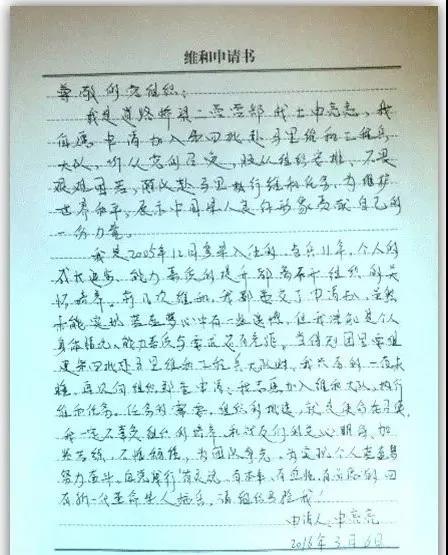 维和申请书
尊敬的党组织：
我是道路桥梁二营营部战士申亮亮，我
自愿申请加入第四批赴马里维和工程兵
大队，听从党的召唤，服从组织安排，不畏
艰难困苦，赴马里执行维和任务，为维护
世界和平，展示中国军人良好形象贡献自己的
一份力量。
我是2005年12月入伍的，当兵11年，个人的
成长进步、能力素质的提升都离不开组织的关
怀培养。前几次维和，我都递交了申请书，虽然
未能实现心中有一些遗憾，但我深知是个人
身体情况、能力素质与要求还有差距。当得知团里要组
建第四批赴马里维和工程兵大队时，我
再次向组织郑重申请：我志愿加入维和大队，执行
维和任务。任务的需要，组织的挑选，
我一定不辜负组织的培养和战友们的关心
努力奋斗，有灵魂、有本事、有血性、有品德的四
有新一代革命军人标兵，请组织考验我！
申请人：申亮亮
2016年3月6日